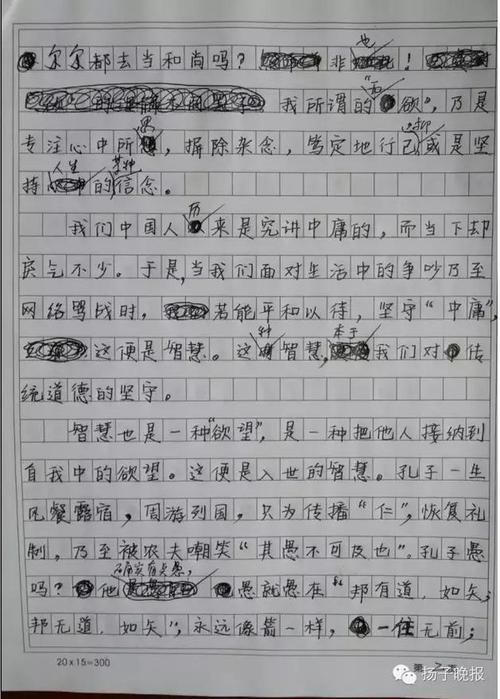 尔尔都去当和尚吗？非也！
我所谓的"无欲"，乃是
专注心中所思，摒除杂念，笃定地行己抑或是坚
持人生中的某种信念。
我们中国人历来是究讲中庸的，而当下却
戾气不少。于是，当我们面对生活中的争吵乃至
网络骂战时，若能平和以待，坚守"中庸"，
这便是智慧。这种智慧，本于我们对传
统道德的坚守。
智慧也是一种"欲望"，是一种把他人接纳到
自我中的欲望。这便是入世的智慧。孔子一生
风餐露宿，周游列国，只为传播"仁"，恢复礼
制，乃至被农夫嘲笑"其愚不可及也"。孔子愚
吗？他确实有点愚，愚就愚在"邦有道，如矢；
邦无道，如矢"，永远像箭一样，一往无前；
20×15=300
第 2 页
扬子晚报